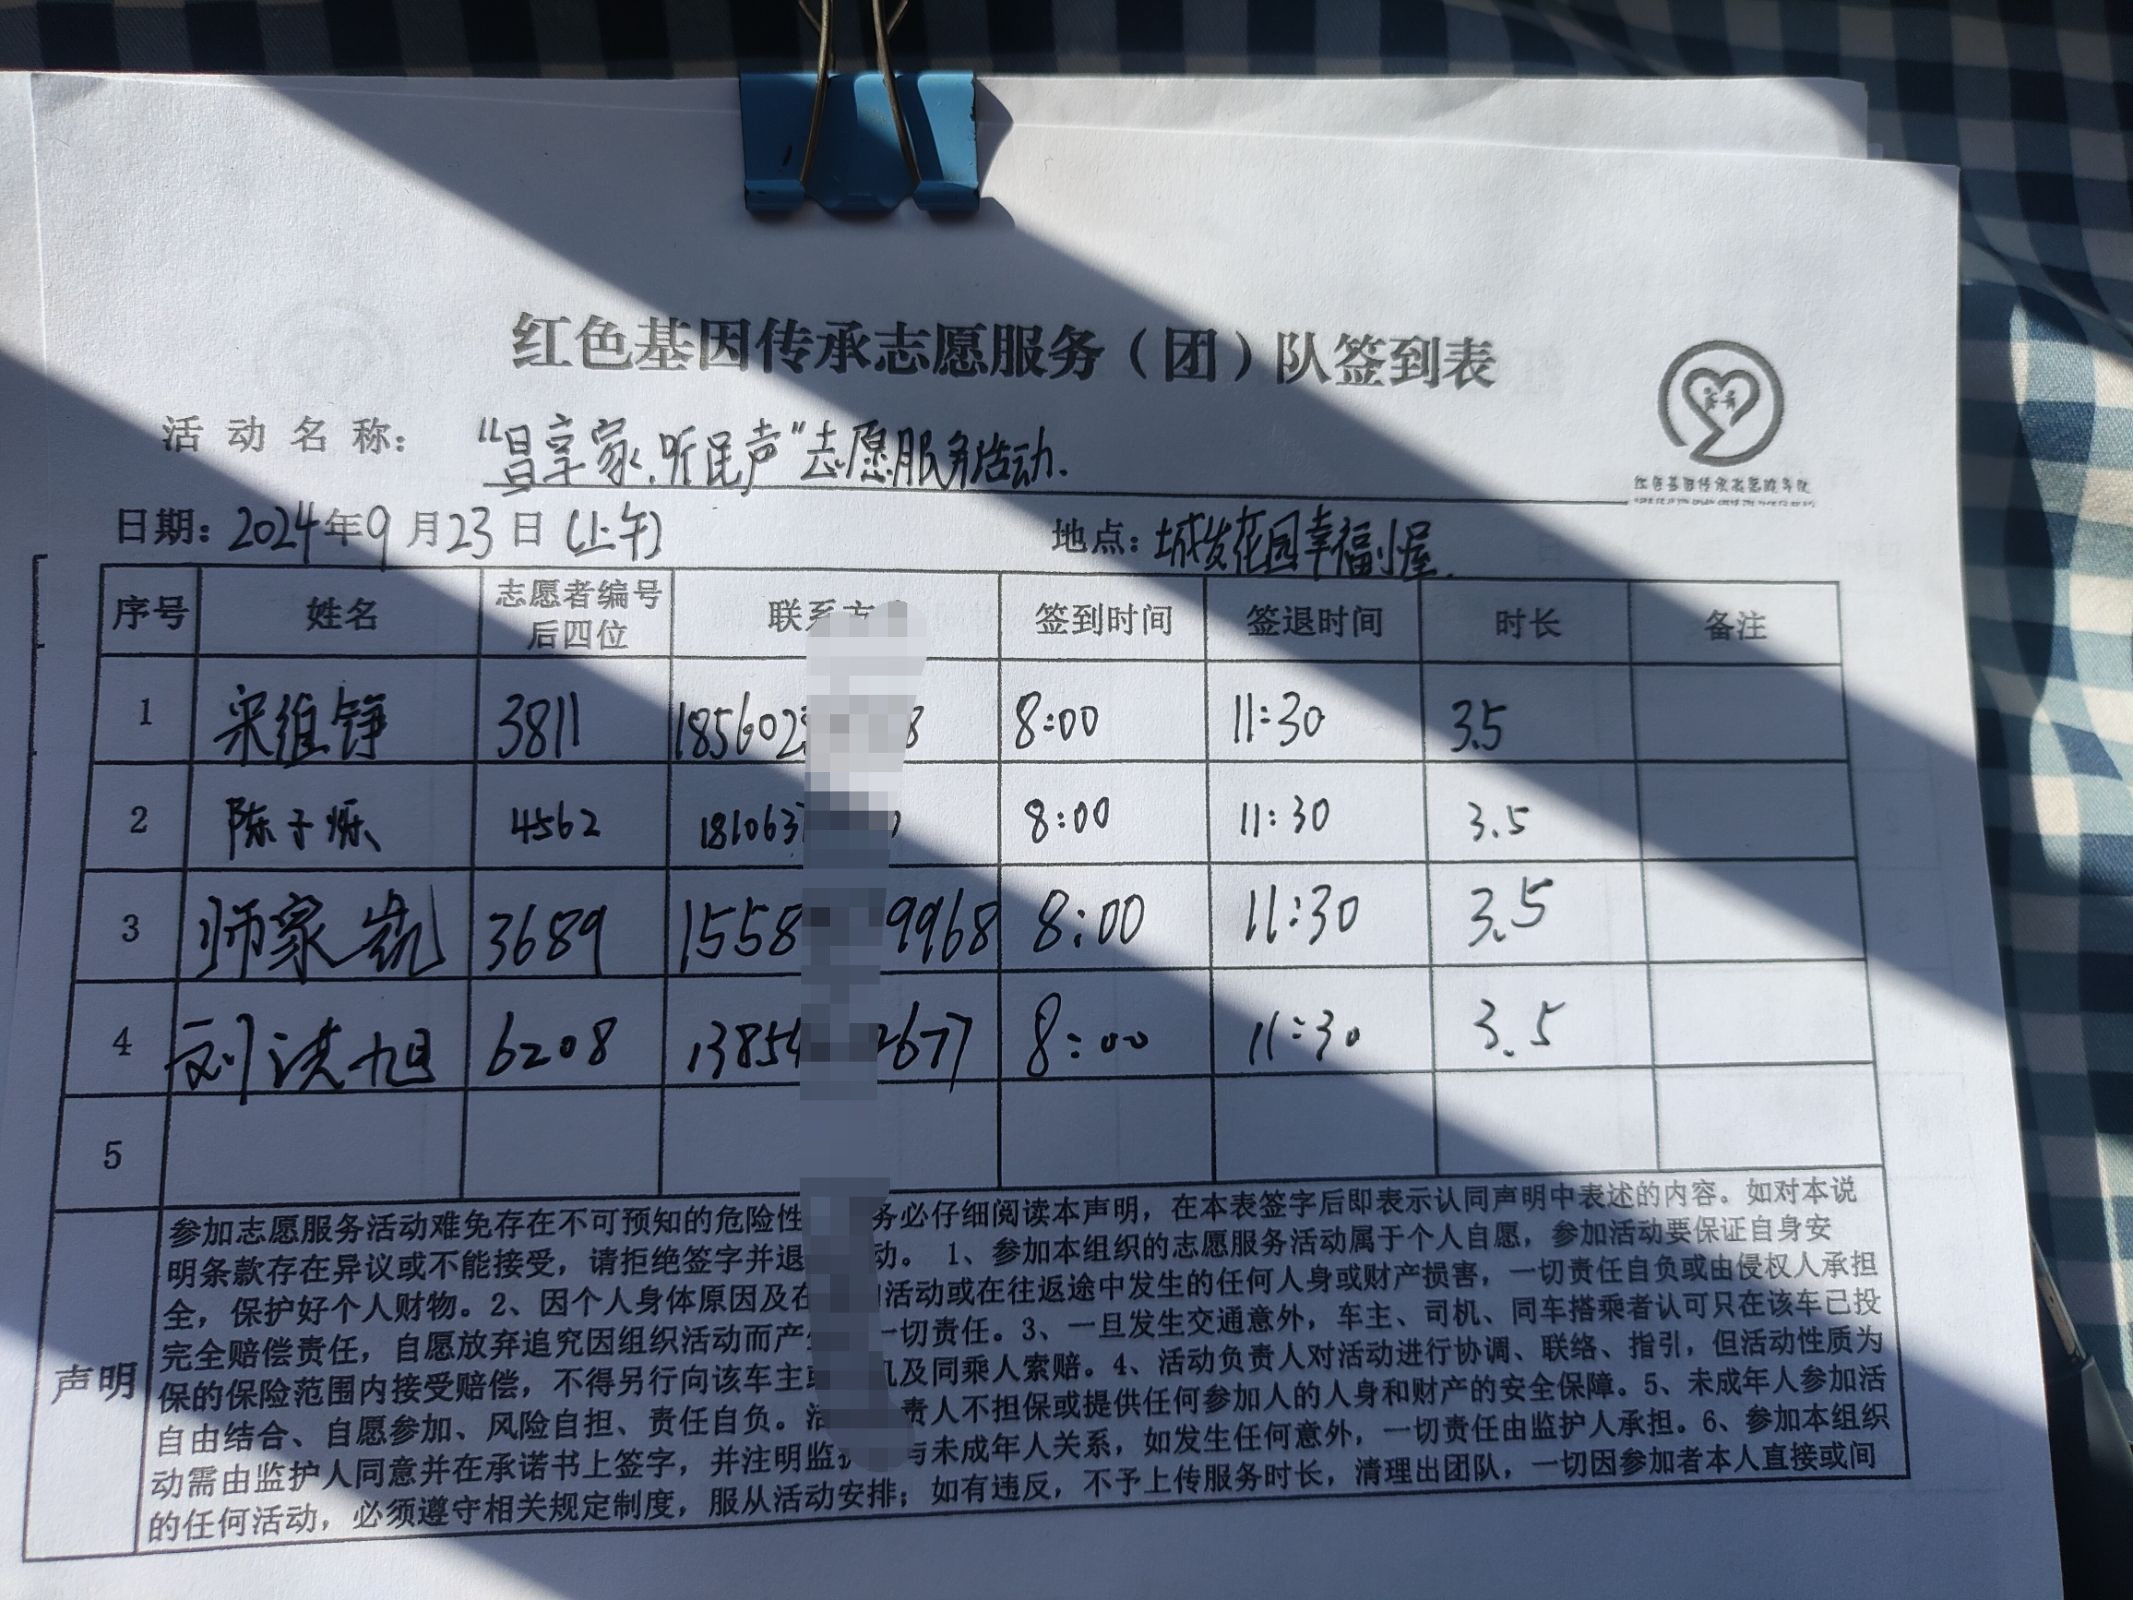 红色基因传承志愿服务（团）队签到表
活动名称： “昌享家.听民声”志愿服务活动.
红色基因传承志愿服务队
日期：2024年9月23日(上午) 地点：城发花园幸福小屋.
序号 姓名 志愿者编号后四位 联系方 签到时间 签退时间 时长 备注
1 宋维铮 3811 185602 8 8:00 11:30 3.5
2 陈子烁 4562 181063 8:00 11:30 3.5
3 师家 3689 1558 9968 8:00 11:30 3.5
4 刘洪旭 6208 1385 2677 8:00 11:30 3.5
5
声明
参加志愿服务活动难免存在不可预知的危险性 务必仔细阅读本声明，在本表签字后即表示认同声明中表述的内容。如对本说
明条款存在异议或不能接受，请拒绝签字并退 动。 1、参加本组织的志愿服务活动属于个人自愿，参加活动要保证自身安
全，保护好个人财物。2、因个人身体原因及在 活动或在往返途中发生的任何人身或财产损害，一切责任自负或由侵权人承担
完全赔偿责任，自愿放弃追究因组织活动而产 一切责任。3、一旦发生交通意外，车主、司机、同车搭乘者认可只在该车已投
保的保险范围内接受赔偿，不得另行向该车主或 机及同乘人索赔。4、活动负责人对活动进行协调、联络、指引，但活动性质为
自由结合、自愿参加、风险自担、责任自负。活 责人不担保或提供任何参加人的人身和财产的安全保障。5、未成年人参加活
动需由监护人同意并在承诺书上签字，并注明监 与未成年人关系，如发生任何意外，一切责任由监护人承担。6、参加本组织
的任何活动，必须遵守相关规定制度，服从活动安排；如有违反，不予上传服务时长，清理出团队，一切因参加者本人直接或间